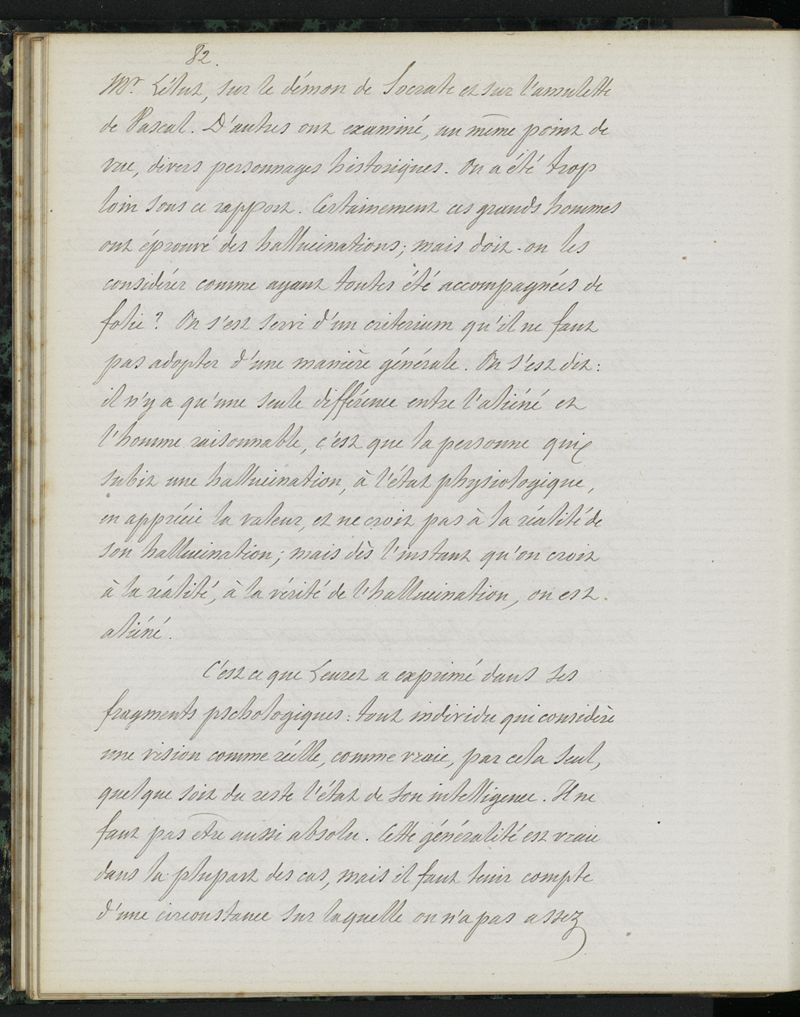 82.
Mr. Lélut, sur le démon de Socrate et sur l'amulette
de Pascal. D'autres ont examiné, au même point de
vue, divers personnages historiques. On a été trop
loin sous ce rapport. Certainement ces grands hommes
ont éprouvé des hallucinations; mais doit-on les
considérer comme ayant toutes été accompagnées de
folie? On s'est servi d'un criterium qu'il ne faut
pas adopter d'une manière générale. On s'est dit:
il n'y a qu'une seule différence entre l'aliéné et
l'homme raisonnable, c'est que la personne qui
subit une hallucination, à l'état physiologique,
en apprécie la valeur, et ne croit pas à la réalité de
son hallucination; mais dès l'instant qu'on croit
à la réalité, à la vérité de l'hallucination, on est
aliéné.
C'est ce que Leuret a exprimé dans ses
fragments pschologiques: tout individu qui considère
une vision comme réelle, comme vraie, par cela seul,
quelque soit du reste l'état de son intelligence. Il ne
faut pas être aussi absolu. Cette généralité est vraie
dans la plupart des cas, mais il faut tenir compte
d'une circonstance sur laquelle on n'a pas assez